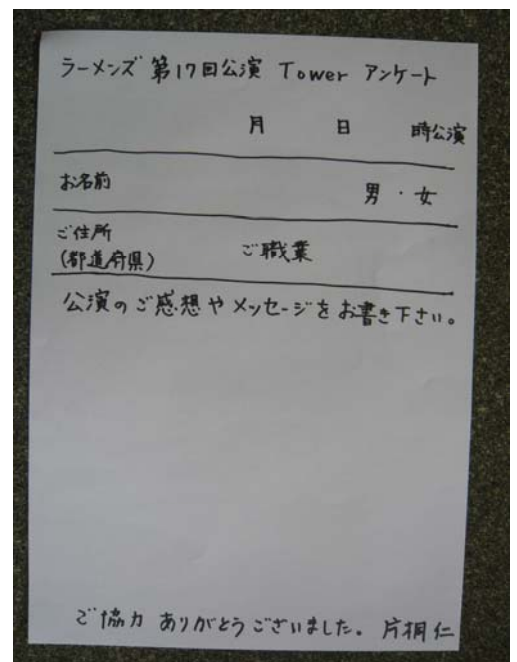 ラーメンズ 第17回公演 Tower アンケート
月 日 時公演
お名前 男・女
ご住所 
(都道府県) ご職業
公演のご感想やメッセージをお書き下さい。
ご協力ありがとうございました。 片桐仁